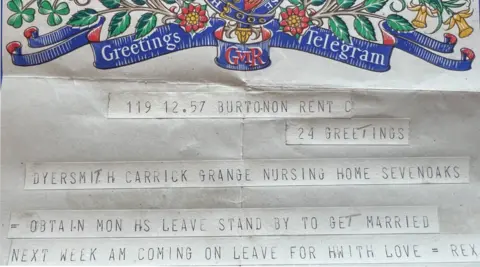 Greetings GVIR Telegram
119 12.57 BURTONON RENT C
24 GREETINGS
DYERSMITH CARRICK GRANGE NURSING HOME SEVENOAKS
= OBTAIN MON HS LEAVE STAND BY TO GET MARRIED
NEXT WEEK AM COMING ON LEAVE FOR HWITH LOVE = REX